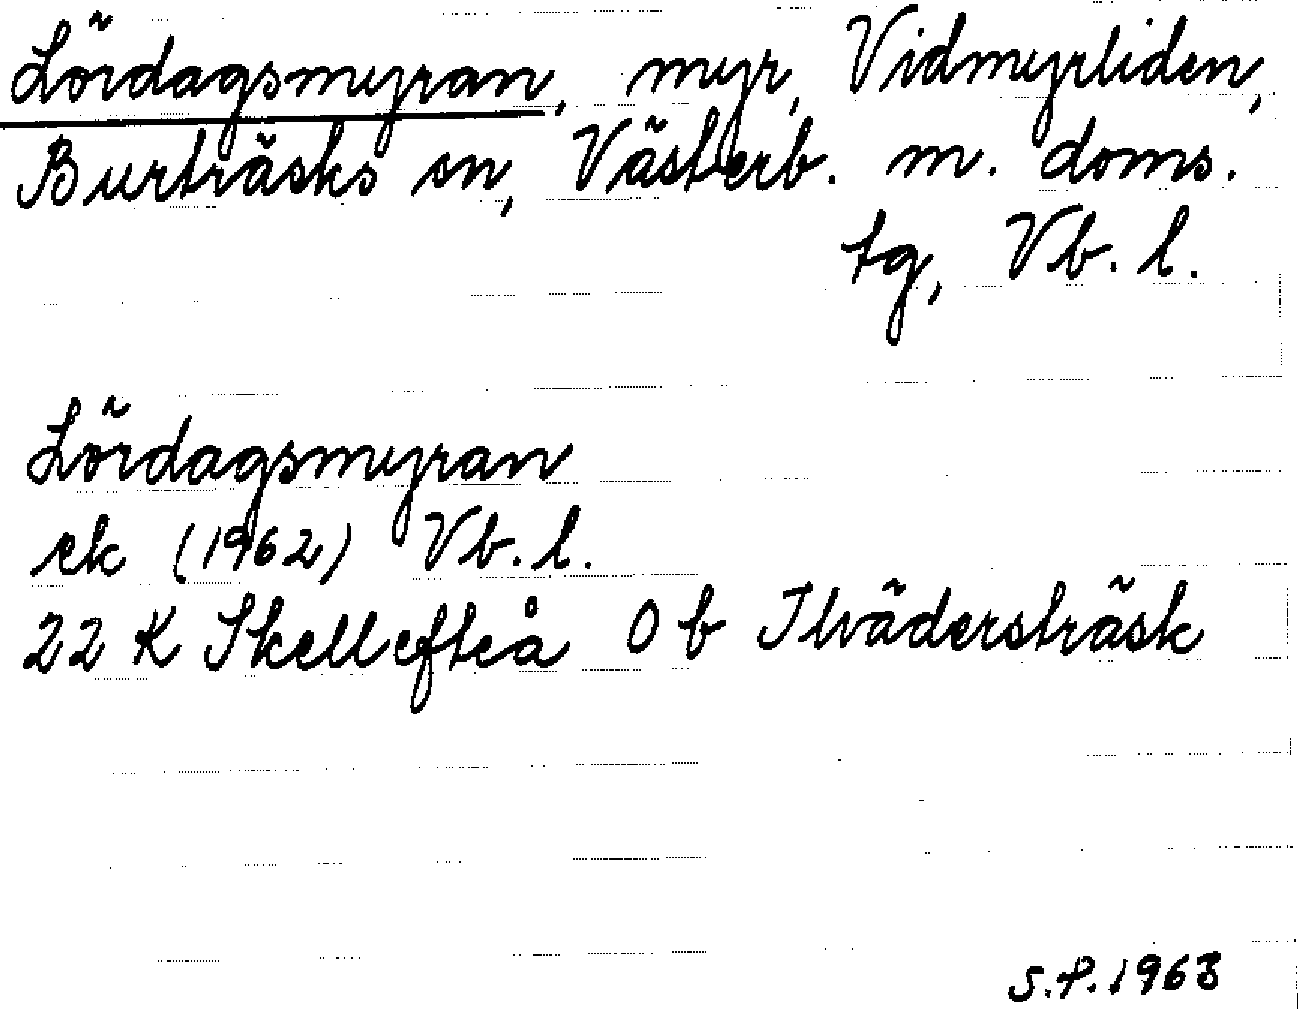 Lördagsmyran, myr, Vidmyrliden,
Burträsks sn, Västerb. m. doms.
tg, Vb. l.
Lördagsmyran
ek (1962) Vb. l.
22 K Skellefteå 0 b Ilvädersträsk
S.P. 1963